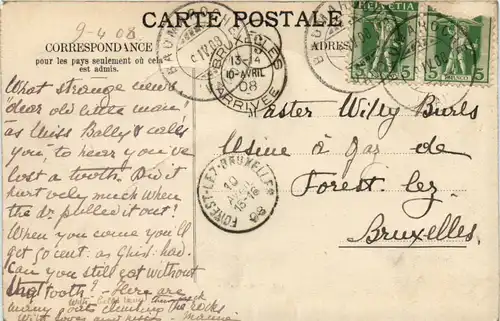 CARTE POSTALE
9-4 08
CORRESPONDANCE
pour les pays seulement où cela
est admis.
ADRESSE
BAUMAROCHE
IV.08
BRUXELLES
13-14
10-AVRIL
08
ARRIVÉE
HELVETIA
5
5
What strange news
"dear old little man"
as Miss Bolly calls
you, to hear you've
lost a tooth. Did it
hurt very much when
the dr pulled it out?
When you come you'll
get 50 cent. as Ghis. had.
Can you still eat without
that tooth? – Here are
many goats climbing the rocks
With love and kisses – Mammie
Master Willy Burls
Usine à Gaz de
Forest lez
Bruxelles
FOREST-LEZ-BRUXELLES
10
AVRIL
08